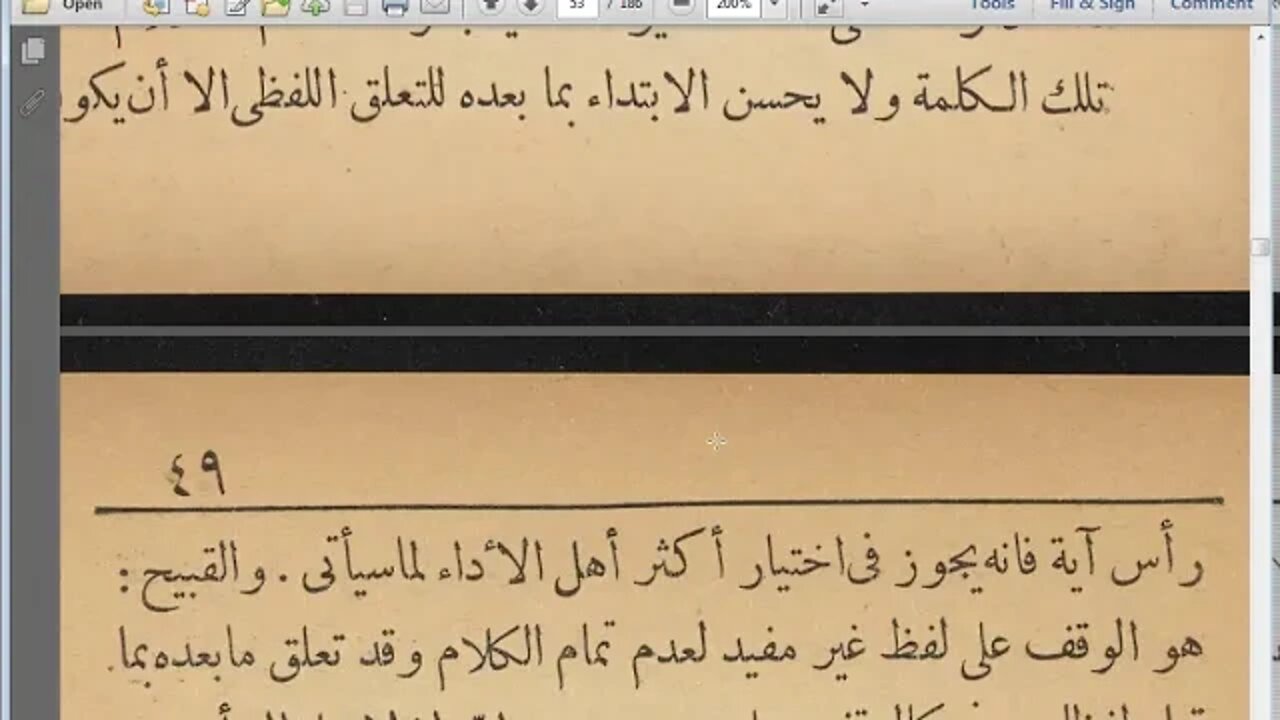 Open
53 / 186
200%
Tools
Fill & Sign
Comment
تلك الكلمة ولا يحسن الابتداء بما بعده للتعلق اللفظى الا أن يكو
٤٩
رأس آية فانه يجوز فى اختيار أكثر أهل الأداء لما سيأتى . والقبيح :
هو الوقف على لفظ غير مفيد لعدم تمام الكلام وقد تعلق ما بعده بما